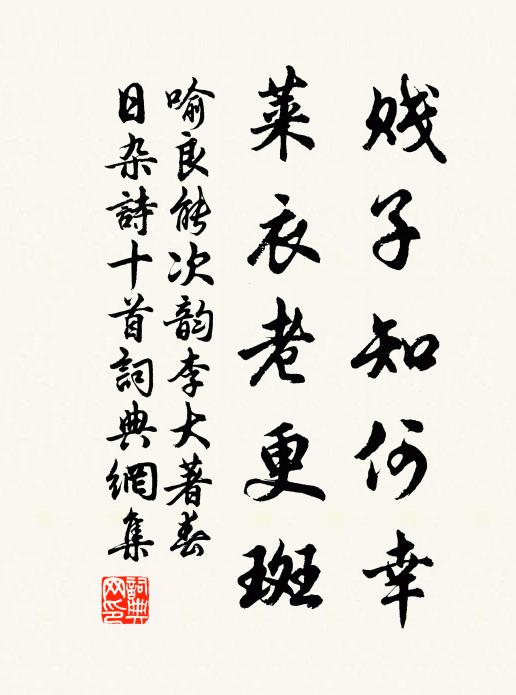 贱子知何幸
萊衣老更斑
喻良能次韵李大著春
日杂詩十首詞典網集
詞典网印